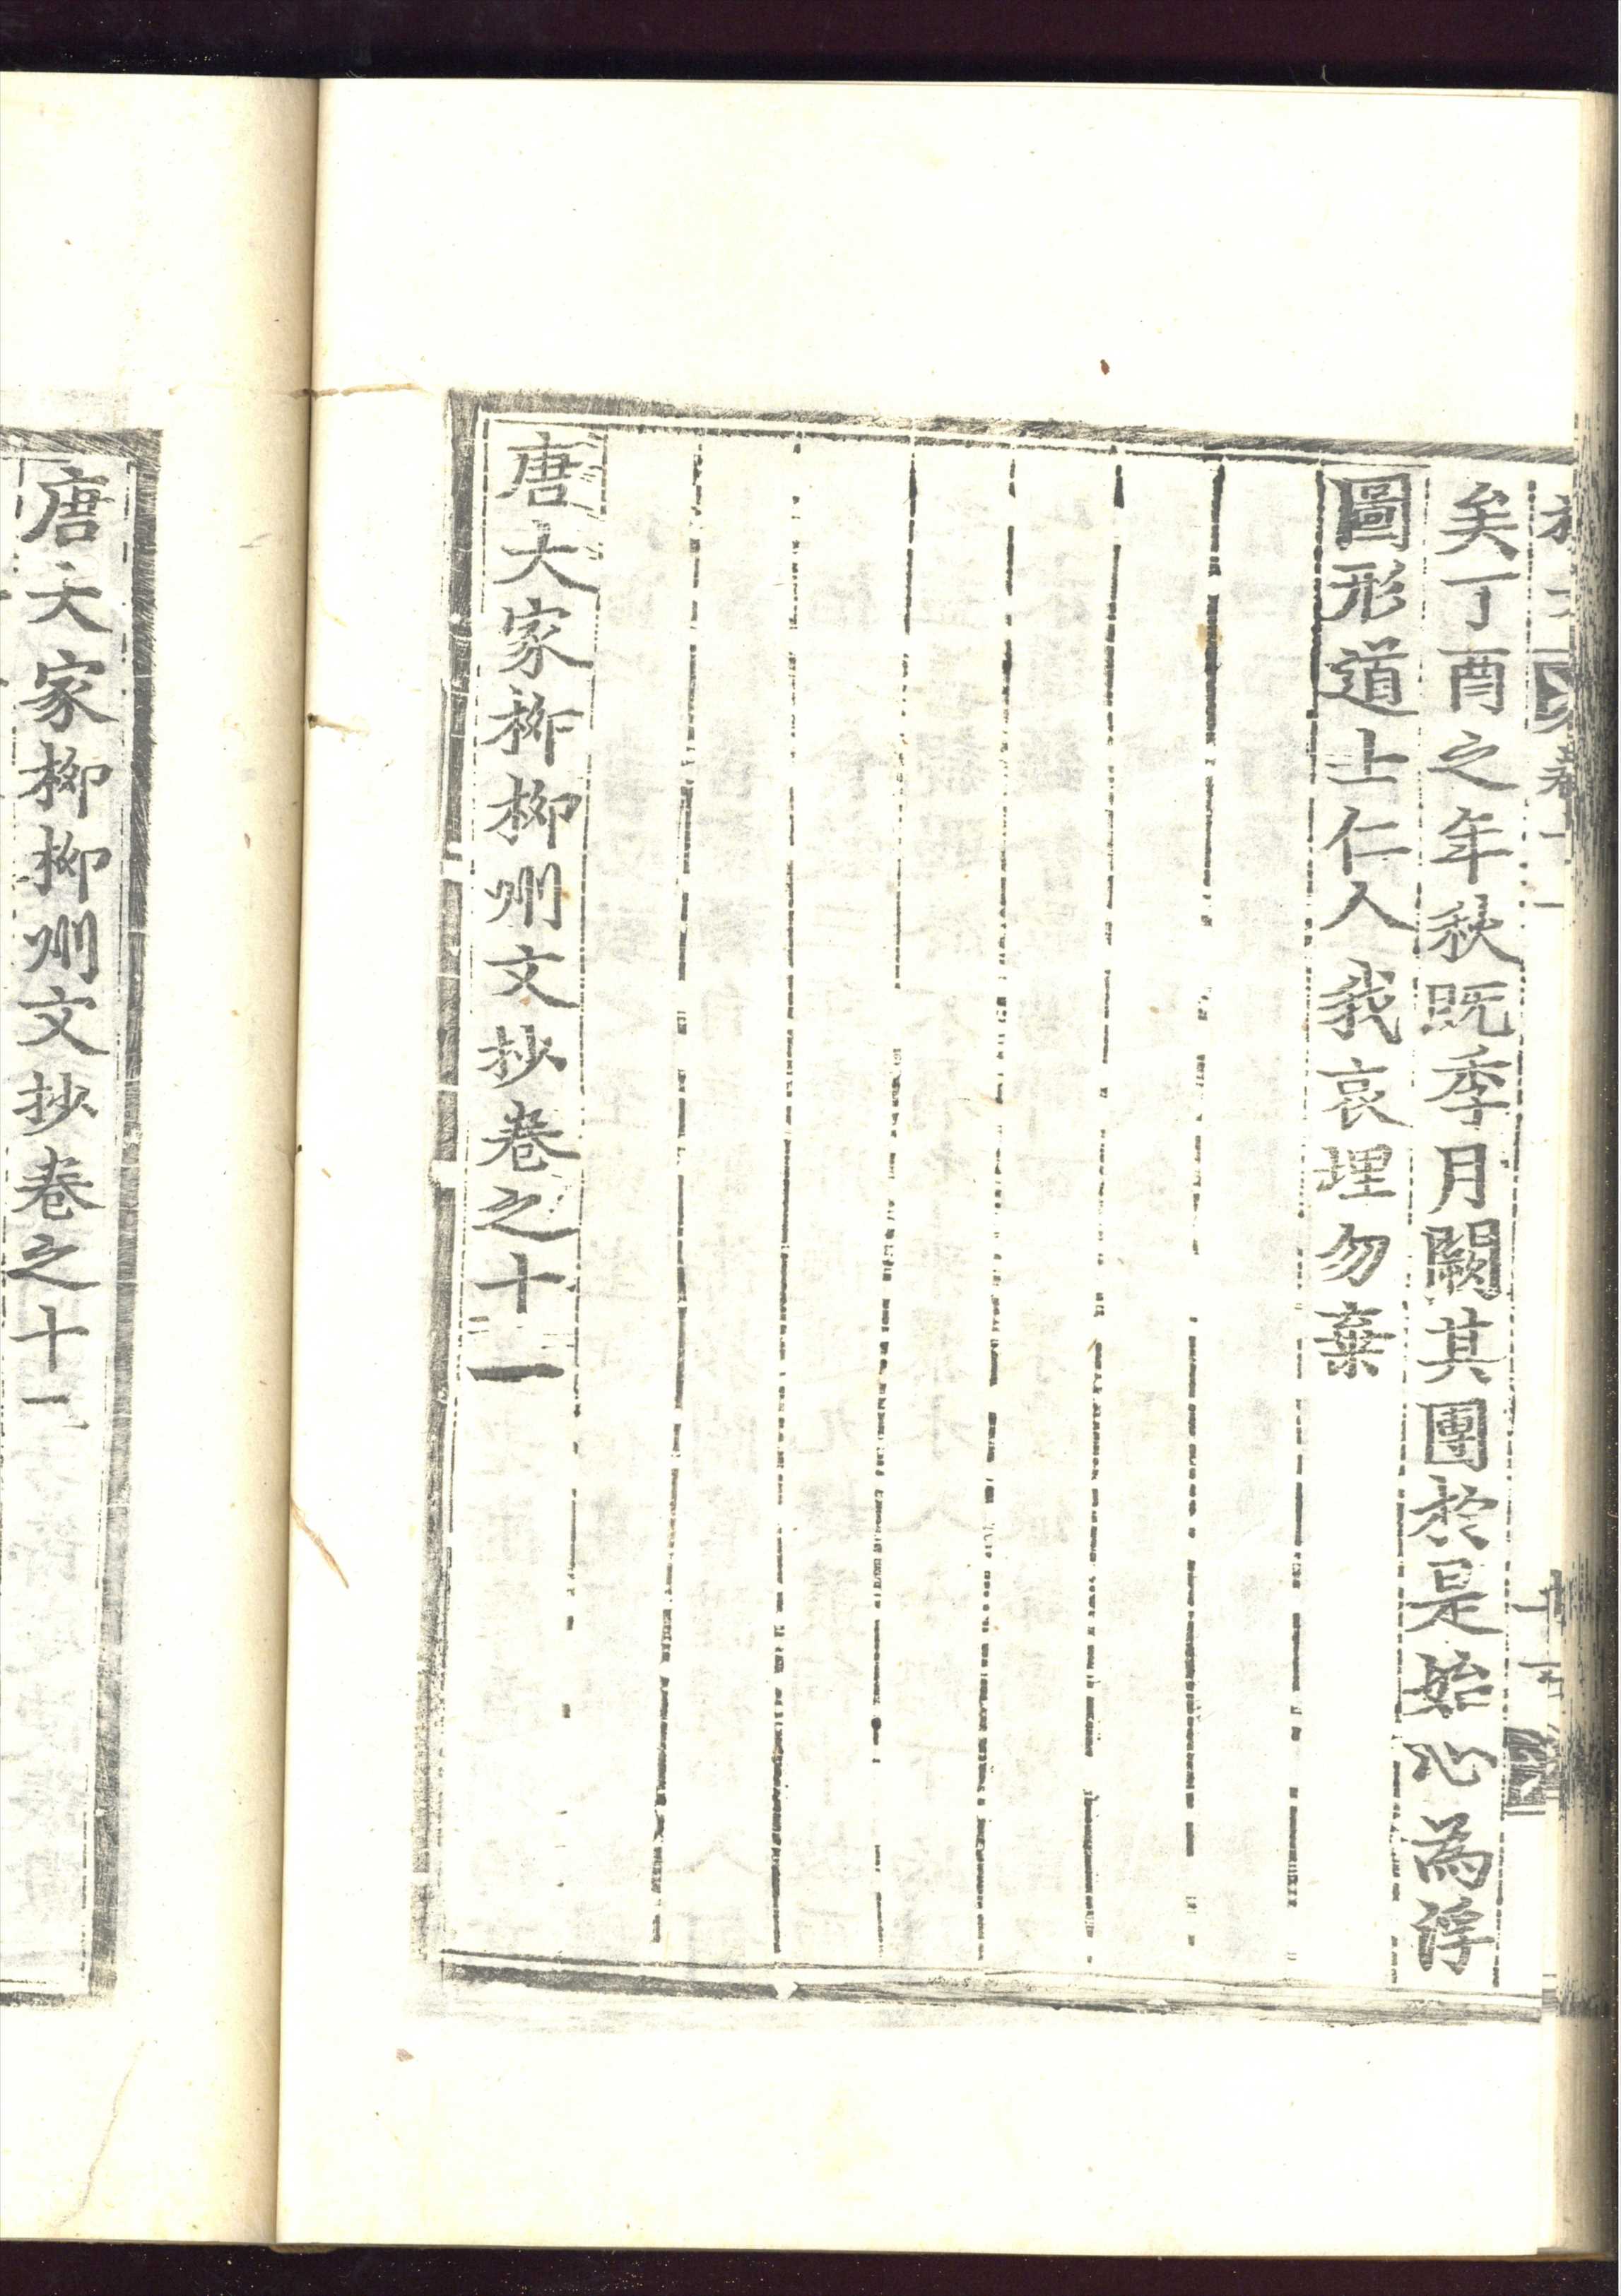 矣丁酉之年秋既季月闕其團於是始心為浮
圖形道上仁人我哀埋勿棄
唐大家柳柳州文抄卷之十一
唐大家柳柳州文抄卷之十一